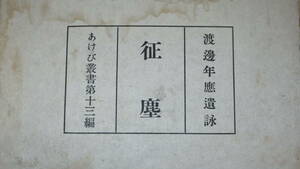 渡邊年應遺詠
征塵
あけび叢書第十三編